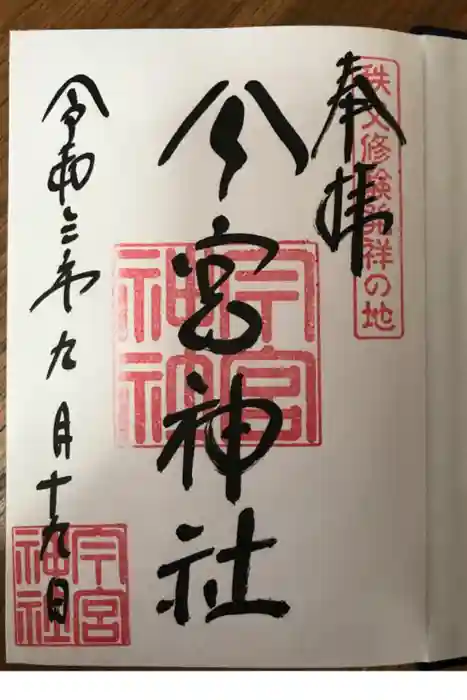 奉拝
秩父修験発祥の地
今宮神社
今宮
神社
令和三年九月十九日
今宮
神社